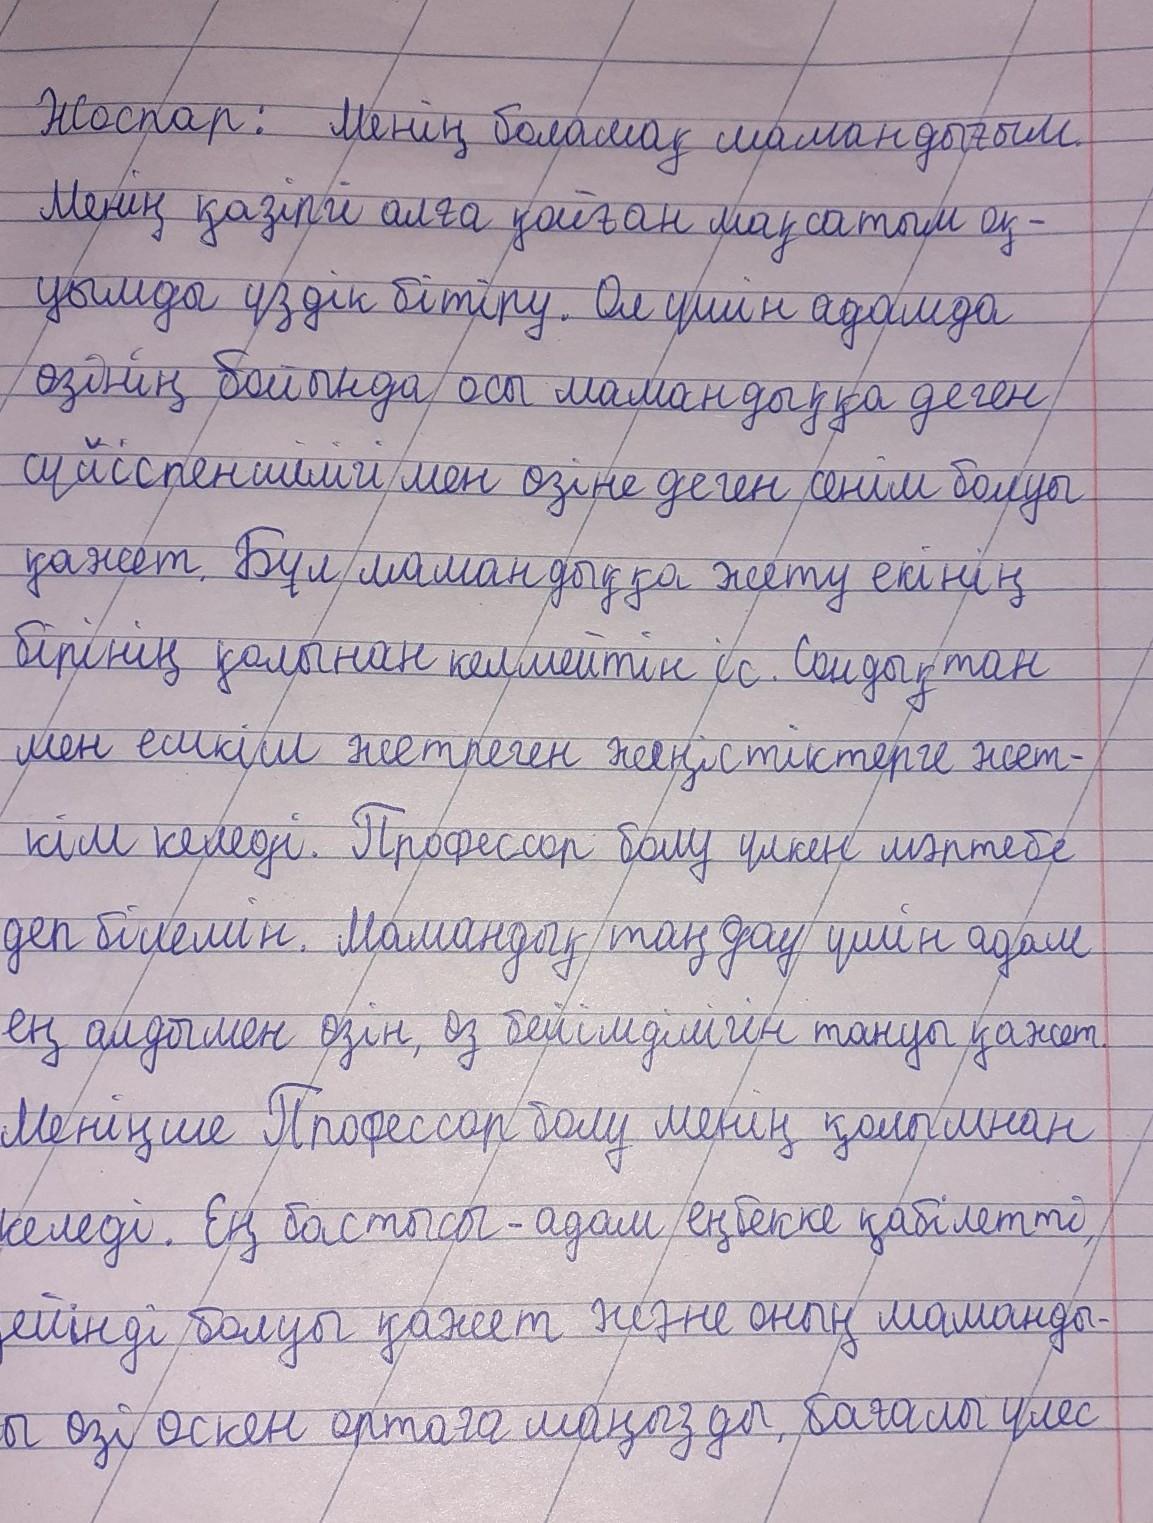 Жоспар: Менің боламақ мамандығым.
Менің қазіргі алға қойған мақсатым оқ-
уымды үздік бітіру. Ол үшін адамда
өзінің бойында осы мамандыққа деген
сүйіспеншілігі мен өзіне деген сенім болуы
қажет. Бұл мамандыққа жету екінің
бірінің қолынан келмейтін іс. Сондықтан
мен ешкім жетпеген жеңістіктерге жет-
кім келеді. Профессор болу үлкен мәртебе
деп білемін. Мамандық таңдау үшін адам
ең алдымен өзін, өз бейімділігін тануы қажет.
Меніңше Профессор болу менің қолымнан
келеді. Ең бастысы - адам еңбекке қабілетті,
ейінді болуы қажет және оның маманды-
ы өзі өскен ортаға маңызды, бағалы үлес